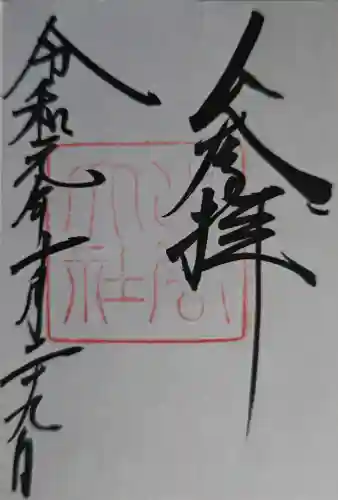 参拝
令和元年十月二十九日